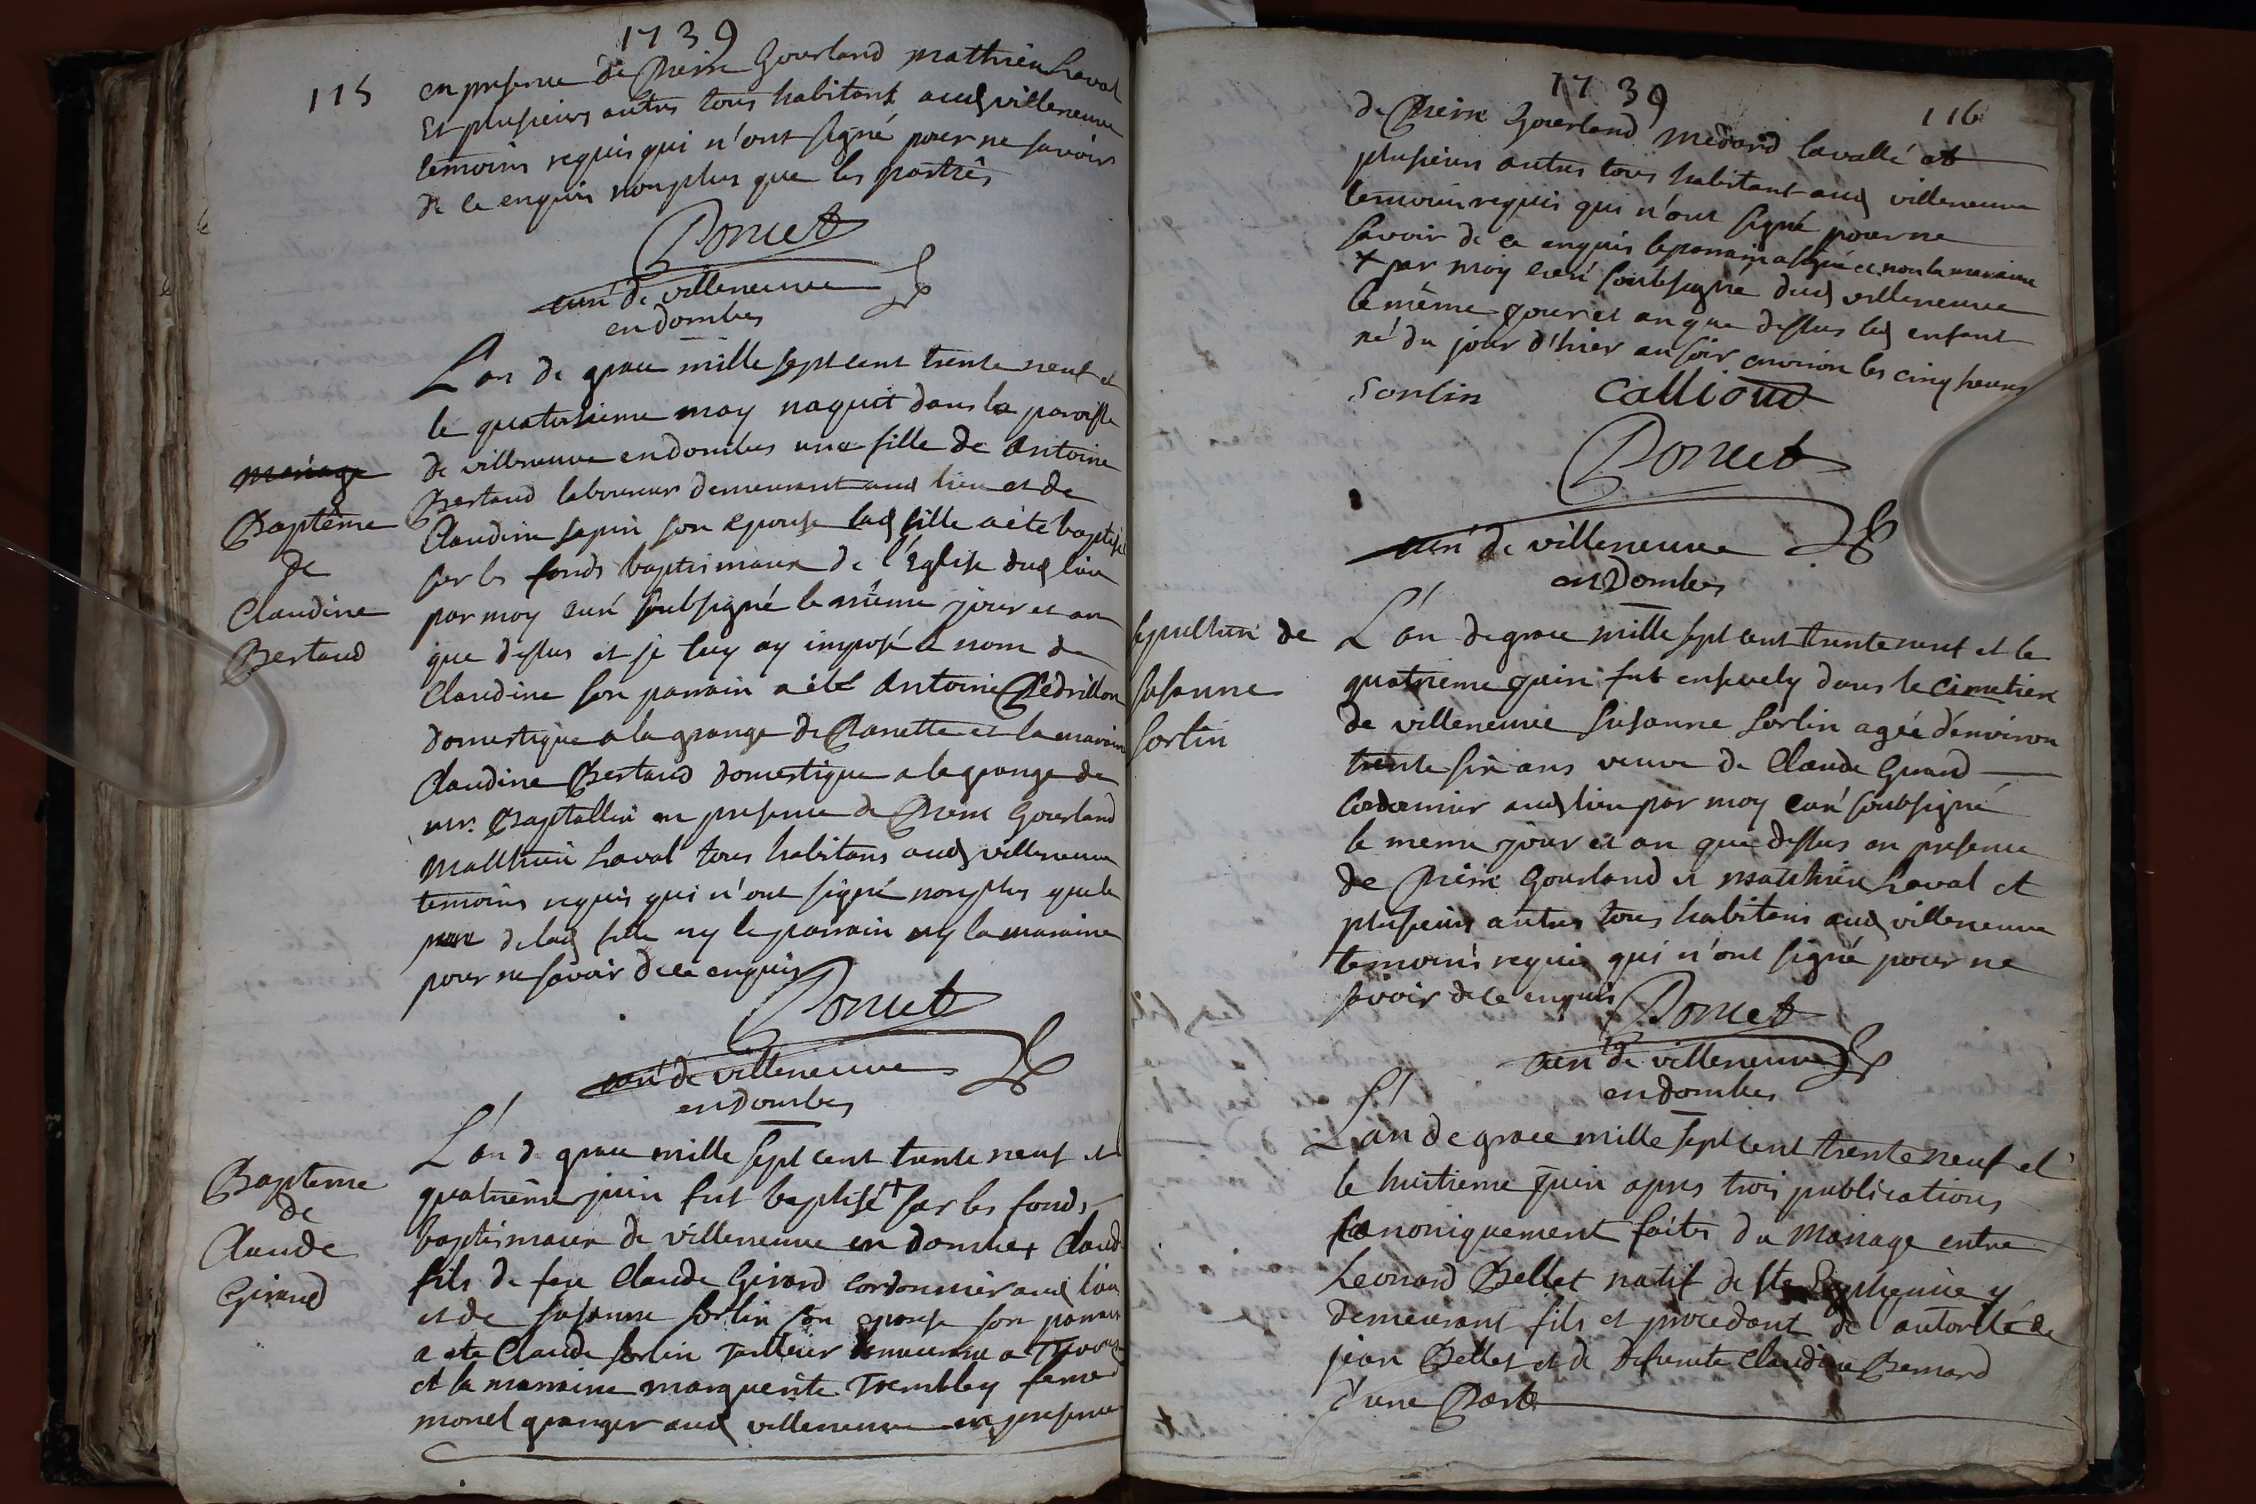 1739
115
en presence de Pierre Gourland Matthieu Laval
Et plusieurs autres tous habitant aud villeneuve
temoins requis qui n'ont signé pour ne savoir
de ce enquis nonplus que les parties
Poncet
curé de villeneuve
en dombes
L'an de grace mille sept cent trente neuf et
le quatorsieme may naquit dans la paroisse
de villeneuve en dombes une fille de Antoine
Bertaud laboureur demeurant aud lieu et de
Claudine sapin son epouse lad fille a été baptisé
sur les fonds baptismaux de l'Eglise dud lieu
par moy curé soubsigné le même jour et an
que dessus et je luy ay imposé le nom de
Claudine son parrain a été Antoine
domestique a la grange de Planette et la maraine
Claudine Bertaud domestique a la grange de
mr. en presence de Pierre Gourland
Matthieu Laval tous habitans aud villeneuve
temoins requis qui n'ont signé nonplus que le
pere de lad fille ny le parrain ny la maraine
pour ne savoir de ce enquis
Poncet
curé de villeneuve
en dombes
mariage
Baptême
de
Claudine
Bertaud
L'an de grace mille sept cent trente neuf et
quatrieme juin fut baptisé + sur les fonds
baptismaux de villeneuve en dombes Claude
fils de feu Claude Girard cordonnier aud lieu
et de susanne sorlin son epouse son parrain
a ete Claude sorlin Tailleur a
et la marraine marguerite Trembley feme
morel granger aud villeneuve en presence
Bapteme
de
Claude
Girard
1739
116
de Pierre Gourland Medard lavallé et
plusieurs autres tous habitant aud villeneuve
temoins requis qui n'ont signé pour ne
savoir de ce enquis le parrain a signé et non la maraine
+ par moy curé soubsigné dud villeneuve
le même jour et an que dessus led enfant
né du jour d'hier au soir environ les cinq heures
Sorlin Callioud
Poncet
curé de villeneuve
en Dombes
sepulture de
susanne
sorlin
L'an de grace mille sept cent trente neuf et le
quatrieme juin fut ensevely dans le cimetiere
de villeneuve susanne sorlin agée d'environ
trente six ans veuve de Claude Girard
Cordonnier aud lieu par moy curé soubsigné
le meme jour et an que dessus en presence
de Pierre Gourland et matthieu Laval et
plusieurs autres tous habitans aud villeneuve
temoins requis qui n'ont signé pour ne
savoir de ce enquis
Poncet
curé de villeneuve
en dombes
L'an de grace mille sept cent trente neuf et
le huitieme juin apres trois publications
canoniquement faites du Mariage entre
Leonard Bellet natif de ste Euphemie y
demeurant fils et procedant de autorité de
jean Bellet et de defunte Claudine Bernard
d'une Part